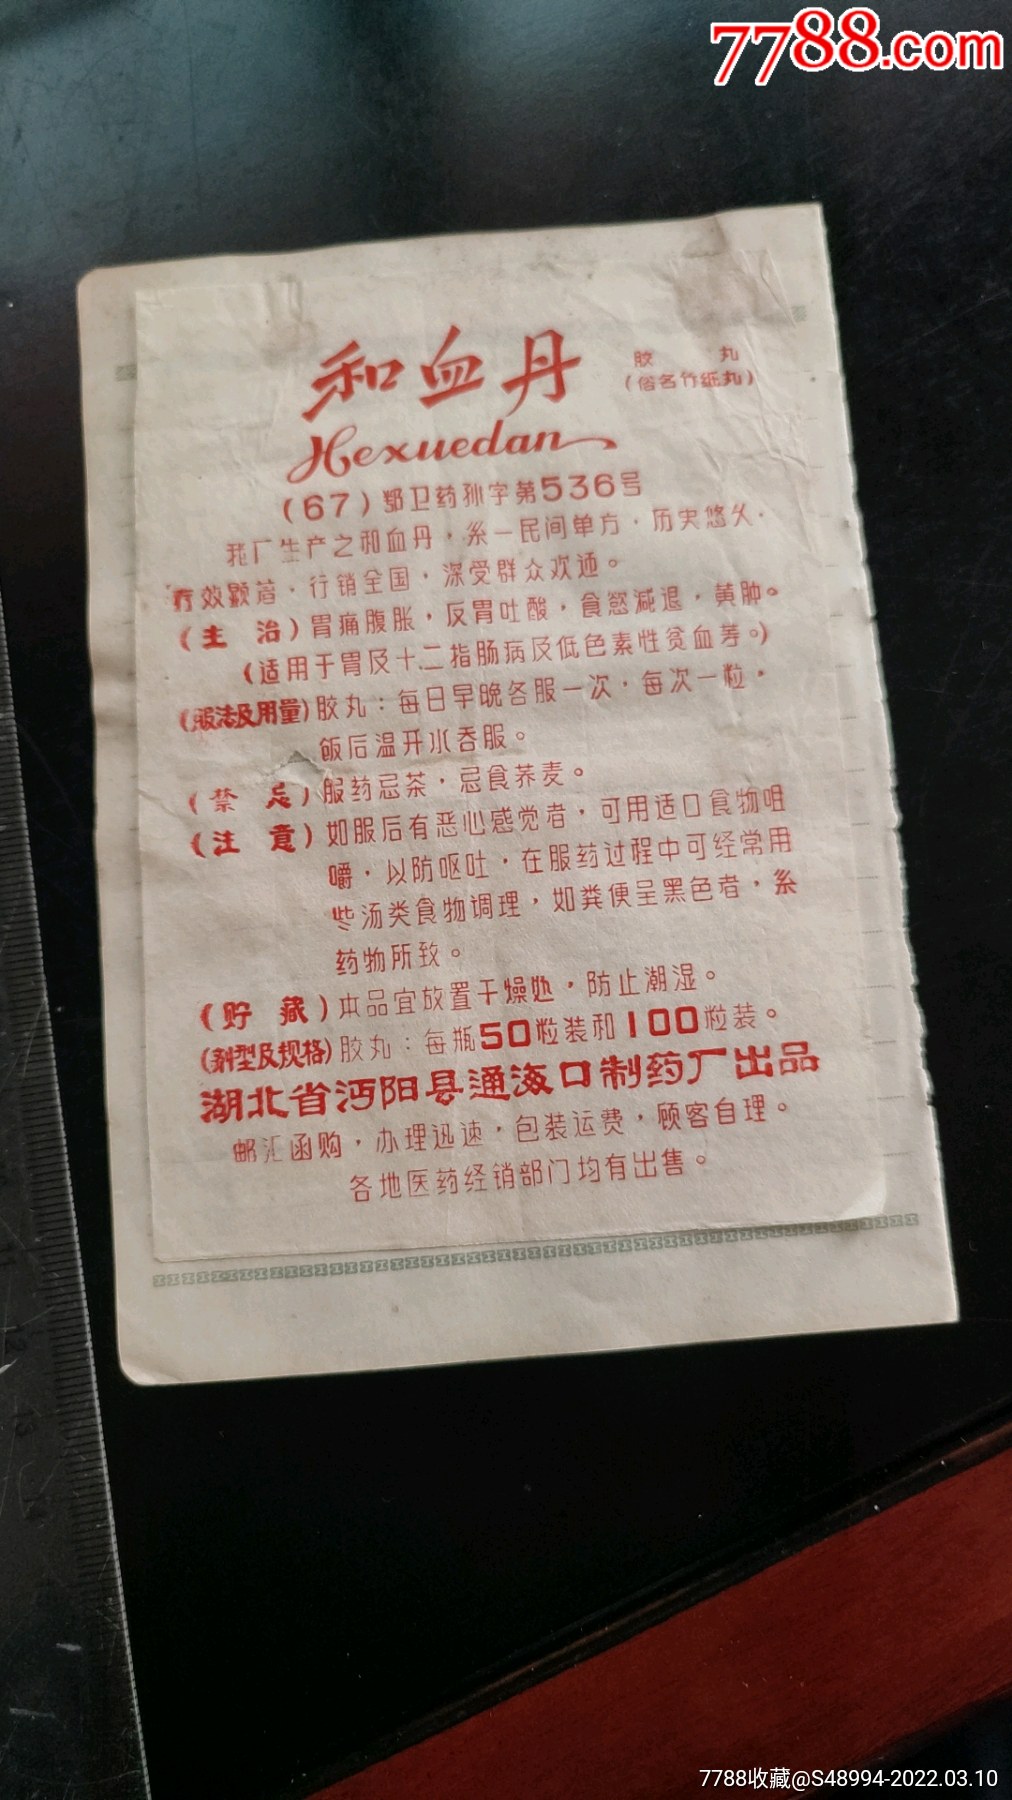 7788.com
和血丹
胶 丸
(俗名竹纸丸)
Hexuedan
(67)鄂卫药孙字第536号
我厂生产之和血丹，系一民间单方，历史悠久，
疗效显着，行销全国，深受群众欢迎。
(主 治)胃痛腹胀，反胃吐酸，食慾减退，黄肿。
(适用于胃及十二指肠病及低色素性贫血等。)
(服法及用量)胶丸：每日早晚各服一次，每次一粒，
饭后温开水吞服。
(禁 忌)服药忌茶，忌食荞麦。
(注 意)如服后有恶心感觉者，可用适口食物咀
嚼，以防呕吐，在服药过程中可经常用
些汤类食物调理，如粪便呈黑色者，系
药物所致。
(贮 藏)本品宜放置干燥处，防止潮湿。
(剂型及规格)胶丸：每瓶50粒装和100粒装。
湖北省沔阳县通海口制药厂出品
邮汇函购，办理迅速，包装运费，顾客自理。
各地医药经销部门均有出售。
7788收藏@S48994-2022.03.10